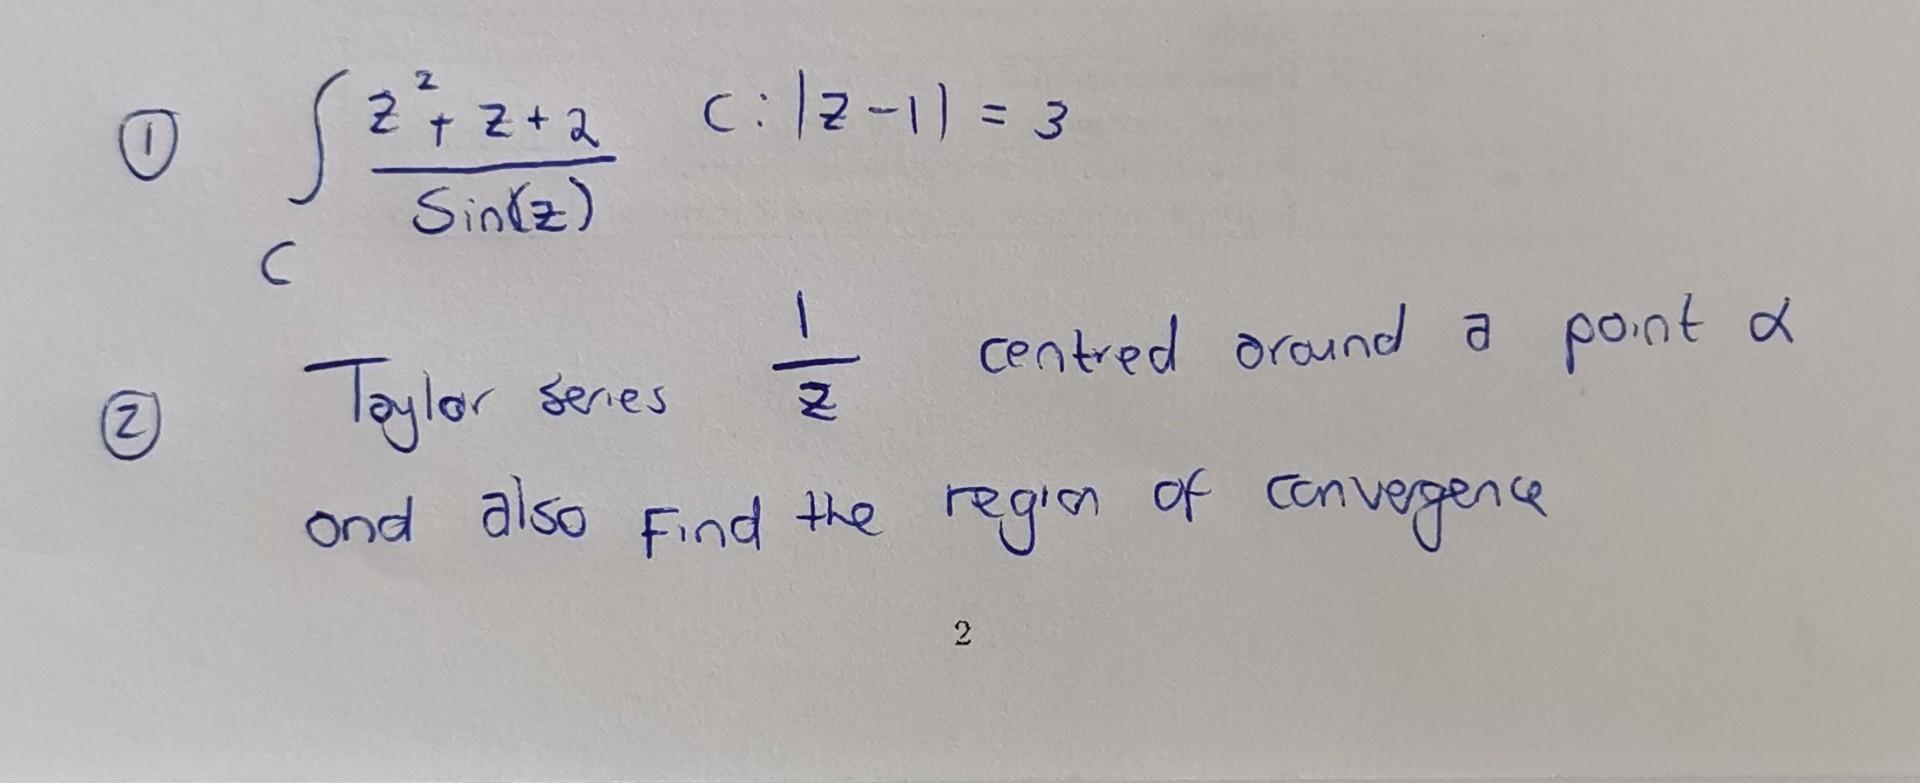 ① ∫ z²+z+2 / Sin(z) C: |z-1| = 3
C
② Taylor series 1/z centred around a point α
and also Find the region of convergence
2